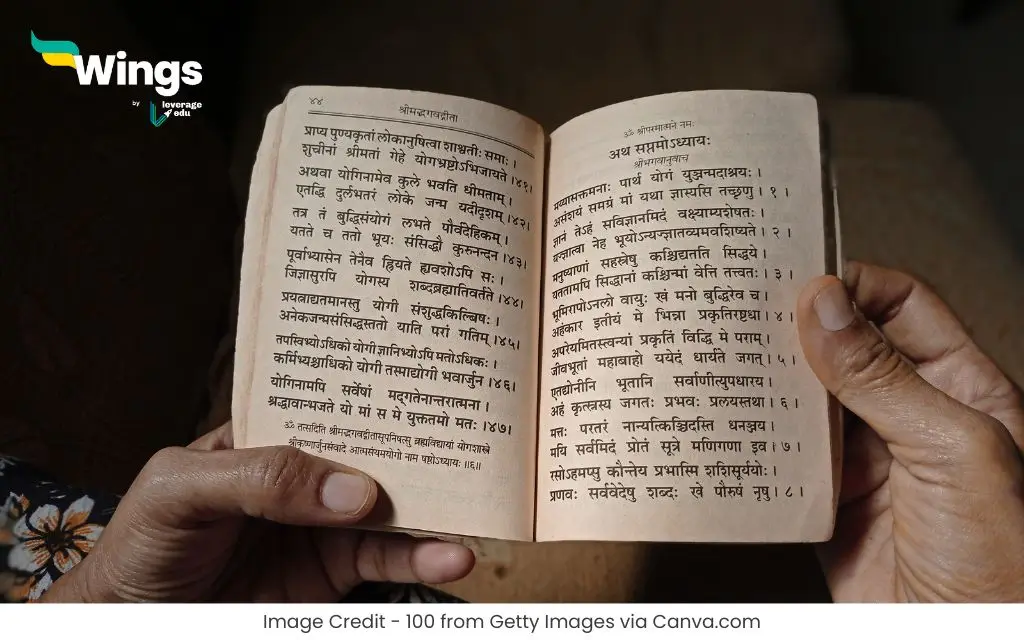 Wings
by leverage edu
४४
श्रीमद्भगवद्गीता
प्राप्य पुण्यकृतां लोकानुषित्वा शाश्वतीः समाः ।
शुचीनां श्रीमतां गेहे योगभ्रष्टोऽभिजायते ।४१।
अथवा योगिनामेव कुले भवति धीमताम् ।
एतद्धि दुर्लभतरं लोके जन्म यदीदृशम् ।४२।
तत्र तं बुद्धिसंयोगं लभते पौर्वदेहिकम् ।
यतते च ततो भूयः संसिद्धौ कुरुनन्दन ।४३।
पूर्वाभ्यासेन तेनैव ह्रियते ह्यवशोऽपि सः ।
जिज्ञासुरपि योगस्य शब्दब्रह्मातिवर्तते ।४४।
प्रयत्नाद्यतमानस्तु योगी संशुद्धकिल्बिषः ।
अनेकजन्मसंसिद्धस्ततो याति परां गतिम् ।४५।
तपस्विभ्योऽधिको योगी ज्ञानिभ्योऽपि मतोऽधिकः ।
कर्मिभ्यश्चाधिको योगी तस्माद्योगी भवार्जुन ।४६।
योगिनामपि सर्वेषां मद्गतेनान्तरात्मना ।
श्रद्धावान्भजते यो मां स मे युक्ततमो मतः ।४७।
ॐ तत्सदिति श्रीमद्भगवद्गीतासूपनिषत्सु ब्रह्मविद्यायां योगशास्त्रे
श्रीकृष्णार्जुनसंवादे आत्मसंयमयोगो नाम षष्ठोऽध्यायः ॥६॥
ॐ श्रीपरमात्मने नमः
अथ सप्तमोऽध्यायः
श्रीभगवानुवाच
मय्यासक्तमनाः पार्थ योगं युञ्जन्मदाश्रयः ।
असंशयं समग्रं मां यथा ज्ञास्यसि तच्छृणु । १ ।
ज्ञानं तेऽहं सविज्ञानमिदं वक्ष्याम्यशेषतः ।
यज्ज्ञात्वा नेह भूयोऽन्यज्ज्ञातव्यमवशिष्यते । २ ।
मनुष्याणां सहस्रेषु कश्चिद्यतति सिद्धये ।
यततामपि सिद्धानां कश्चिन्मां वेत्ति तत्त्वतः । ३ ।
भूमिरापोऽनलो वायुः खं मनो बुद्धिरेव च ।
अहंकार इतीयं मे भिन्ना प्रकृतिरष्टधा । ४ ।
अपरेयमितस्त्वन्यां प्रकृतिं विद्धि मे पराम् ।
जीवभूतां महाबाहो ययेदं धार्यते जगत् । ५ ।
एतद्योनीनि भूतानि सर्वाणीत्युपधारय ।
अहं कृत्स्नस्य जगतः प्रभवः प्रलयस्तथा । ६ ।
मत्तः परतरं नान्यत्किञ्चिदस्ति धनञ्जय ।
मयि सर्वमिदं प्रोतं सूत्रे मणिगणा इव । ७ ।
रसोऽहमप्सु कौन्तेय प्रभास्मि शशिसूर्ययोः ।
प्रणवः सर्ववेदेषु शब्दः खे पौरुषं नृषु । ८ ।
Image Credit - 100 from Getty Images via Canva.com